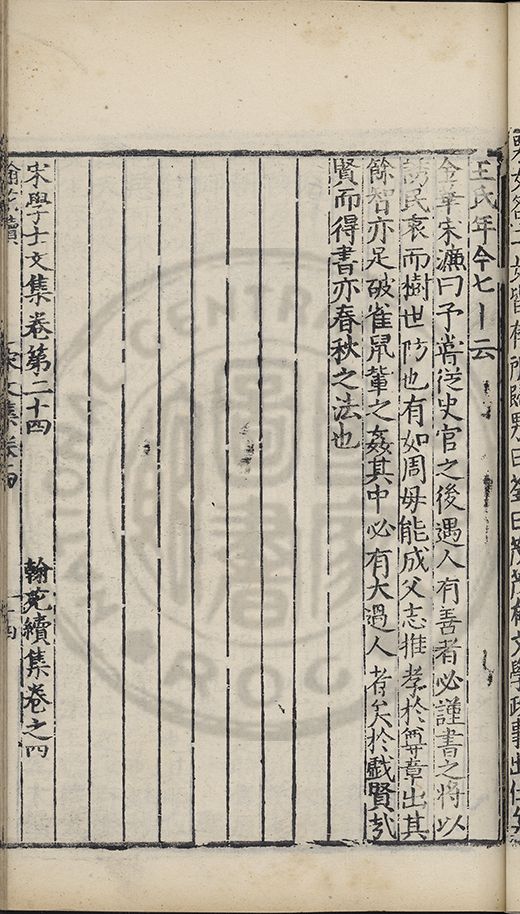 王氏年今七十云
金華宋濂曰予嘗從史官之後遇人有善者必謹書之將以
訪民衷而樹世防也有如周毋能成父志推孝於尊章出其
餘智亦足破雀鼠輩之姦其中必有大過人者矣於戲賢哉
賢而得書亦春秋之法也
宋學士文集卷第二十四
翰苑續集卷之四